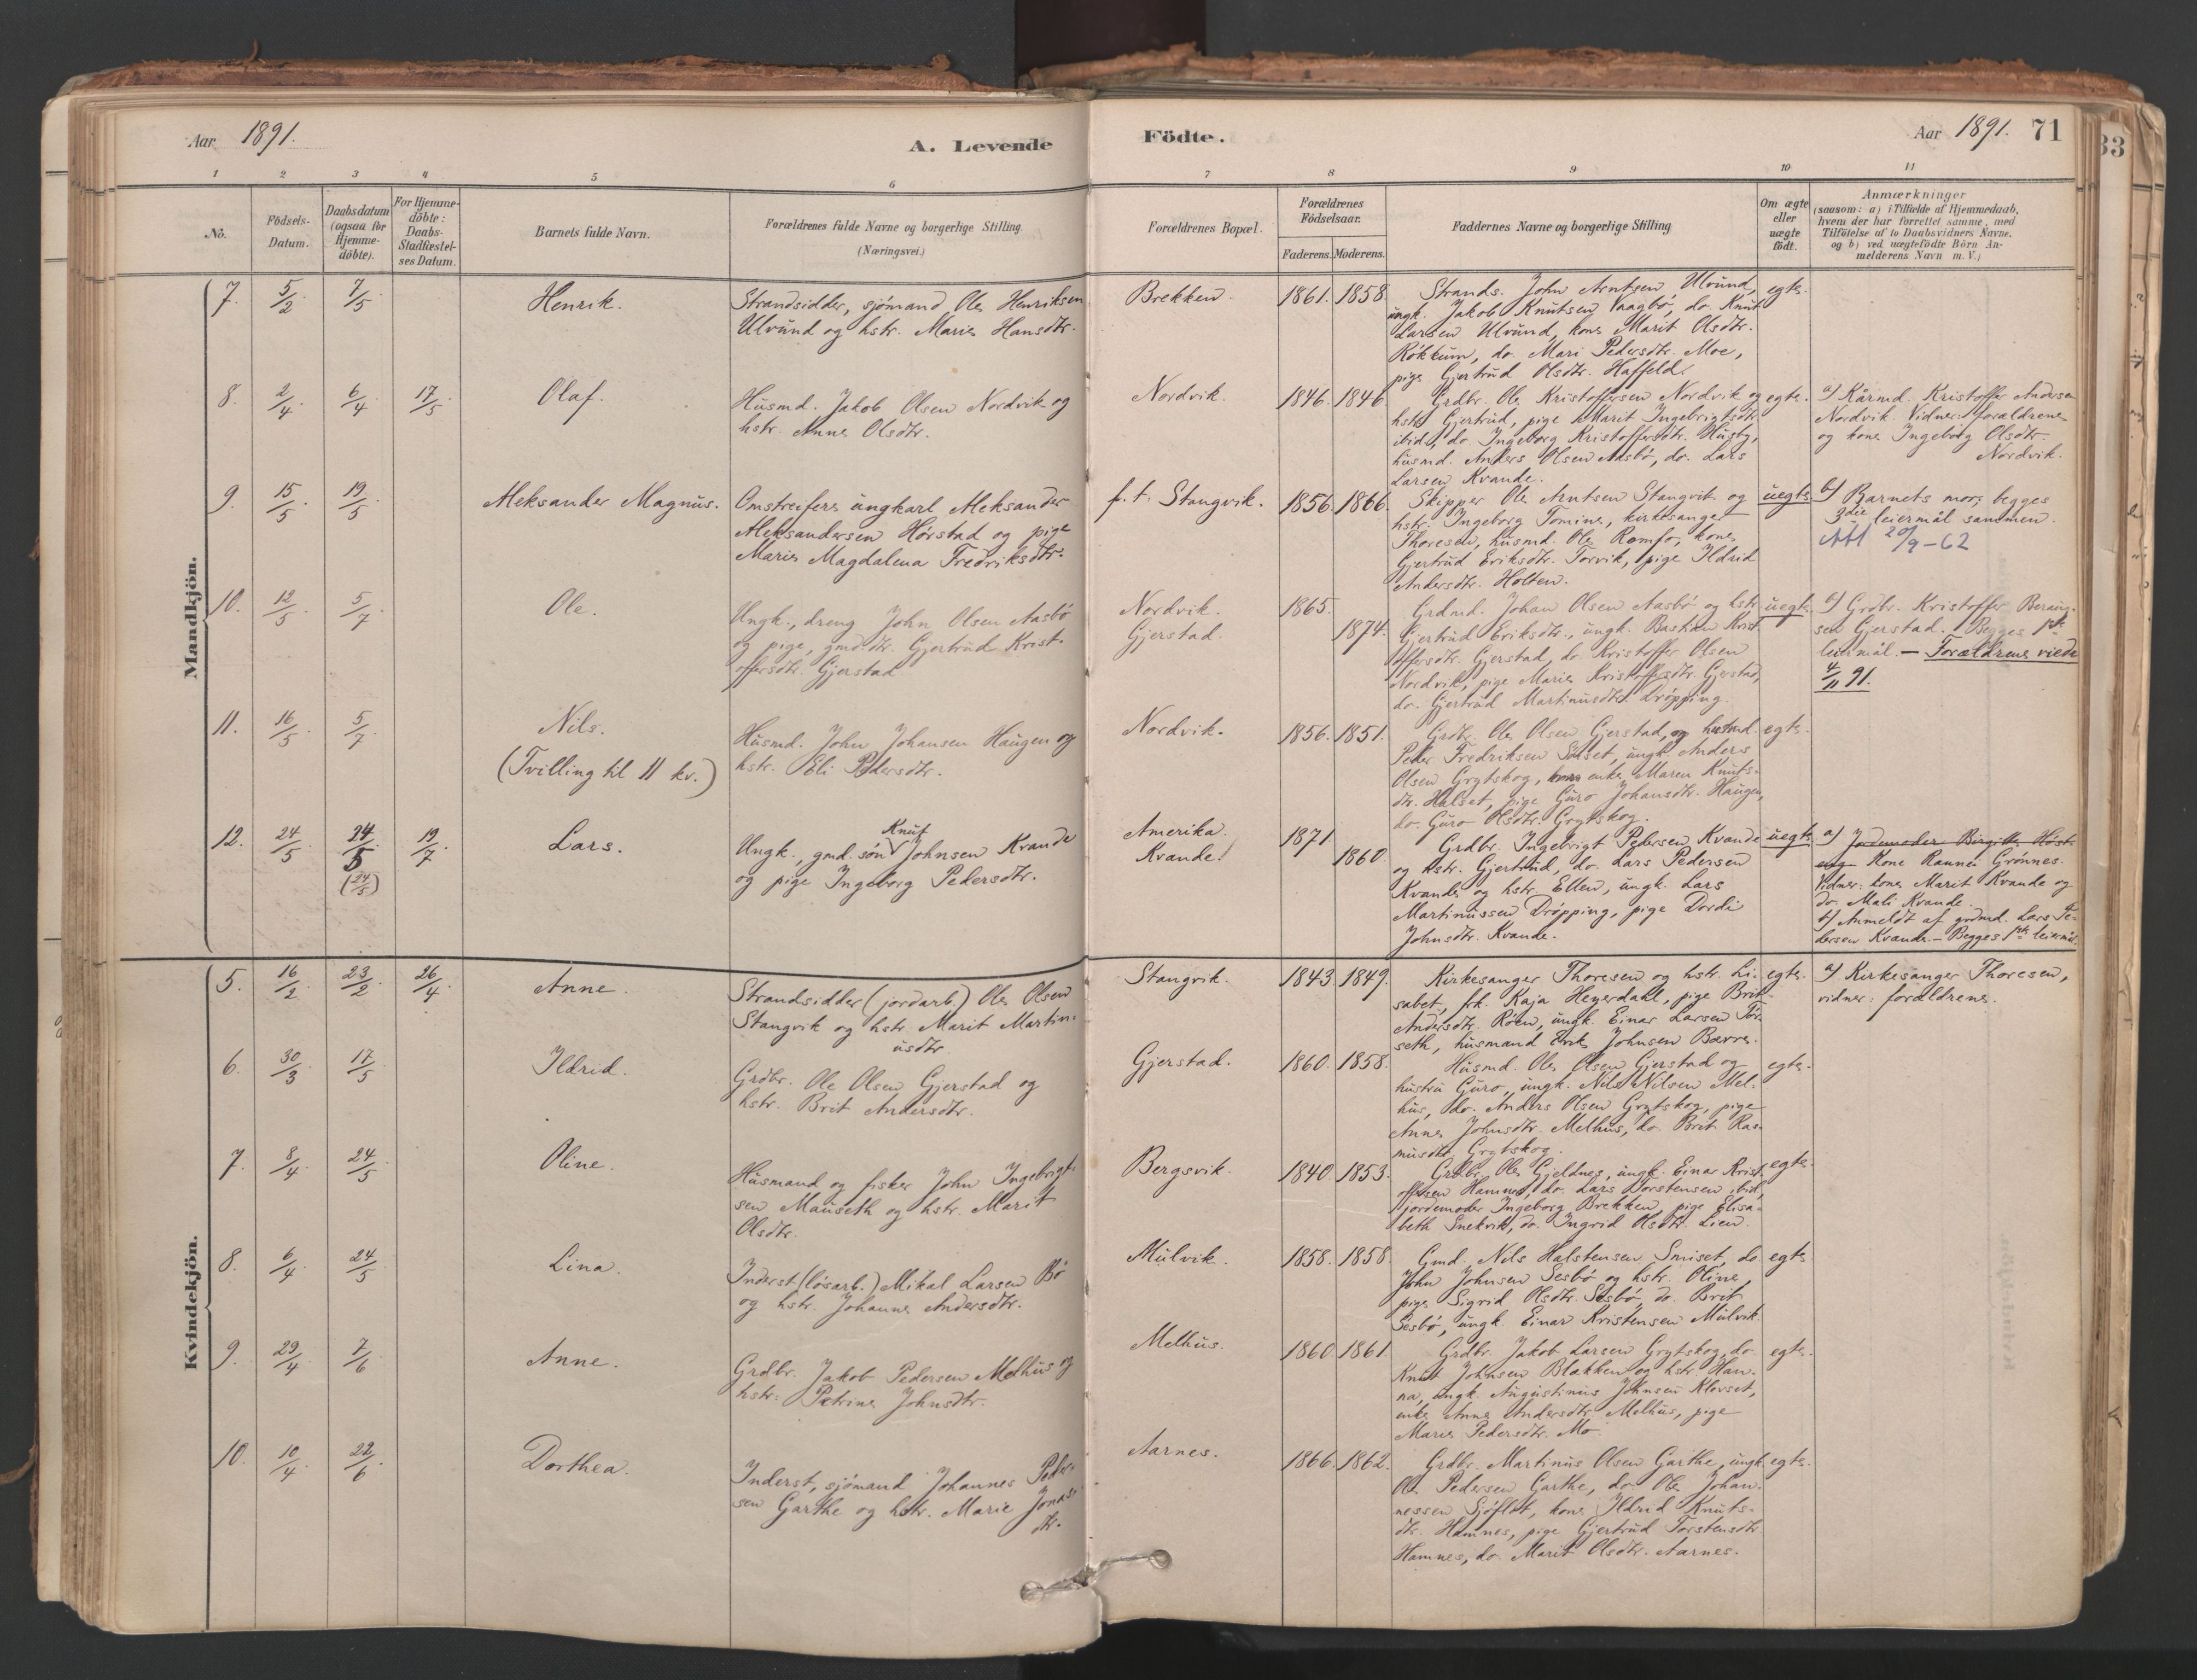 Aar 1891.
A. Levende
Födte.
Aar 1891. 71
33
1 2 3 4 5 6 7 8 9 10 11
No.
Födsels-
Datum.
Daabsdatum
(ogsaa for
Hjemme-
döbte).
For Hjemme-
döbte:
Daabs-
Stadfæstel-
ses Datum.
Barnets fulde Navn.
Forældrenes fulde Navne og borgerlige Stilling
(Næringsvei.)
Forældrenes Bopæl.
Forældrenes
Födselsaar.
Faderens. Moderens.
Faddernes Navne og borgerlige Stilling
Om ægte
eller
uægte
födt.
Anmærkninger
(saasom: a) i Tilfælde af Hjemmedaab,
hvem der har forrettet samme, med
Tilföielse af to Daabsvidners Navne.
og b) ved uægtefödte Börn An-
melderens Navn m. V.)
Mandkjön.
7. 5/2 7/5 Henrik.
Strandsidder, sjömand Ole Henriksen
Ulvund og hstr. Marie Hansdtr.
Brekken. 1861. 1858.
Strands. John Arntsen Ulvund,
ungk. Jakob Knutsen Vaagbö, do. Knut
Larsen Ulvund, kone Marit Olsdtr.
Rökkum, do. Mari Pedersdtr. Moe,
pige Gjertrud Olsdtr. Haffeld.
egte.
8. 2/4 6/4 17/5 Olaf.
Husmd. Jakob Olsen Nordvik og
hstr. Anne Olsdtr.
Nordvik. 1846. 1846
Grdbr. Ole Kristoffersen Nordvik og
hstr. Gjertrud, pige Marit Ingebrigtsdtr.
ibid., do. Ingeborg Kristoffersdtr. Husby,
husmd. Anders Olsen Aasbö, do. Lars
Larsen Kvande.
egte.
a) Kårmd. Kristoffer Andersen
Nordvik. Vidner: forældrene
og kone Ingeborg Olsdtr.
Nordvik.
9. 15/5 19/5 Aleksander Magnus.
Omstreifere ungkarl Aleksander
Aleksandersen Hörstad og pige
Marie Magdalena Fredriksdtr.
p. t. Stangvik. 1856. 1866.
Skipper Ole Arntsen Stangvik og
hstr. Ingeborg Tomine, kirkesanger
Thoresen, husmd. Ole Romfo, kone
Gjertrud Eriksdtr. Torvik, pige Ildrid
Andersdtr. Holten.
uegte.
b) Barnets mor; begges
3die leiermål sammen.
Att 20/9-62
10. 12/5 5/7 Ole.
Ungk., dreng John Olsen Aasbö
og pige, gmd. dtr. Gjertrud Krist-
offersdtr. Gjerstad
Nordvik.
Gjerstad.
1865.
1874.
Grdmd. Johan Olsen Aasbö og hstr
Gjertrud Eriksdtr., ungk. Bastian Krist
offersdtr. Gjerstad, do. Kristoffer Olsen
Nordvik, pige Marie Kristoffersdtr. Gjerstad,
do. Gjertrud Martinusdtr. Dröpping.
uegte.
b) Grdbr. Kristoffer
sen Gjerstad. Begges 1ste
leiermål. — Forældrene viede
4/11 91.
11. 16/5 5/7 Nils.
(Tvilling til 11 kv.)
Husmd. John Johansen Haugen og
hstr. Eli Pedersdtr.
Nordvik. 1856. 1851.
Grdbr. Ole Olsen Gjerstad, og husmd.
Peder Fredriksen ungk. Anders
Olsen Grytskog, enke Maren Knuts-
dtr. Halset, pige Guro Johansdtr. Haugen,
do. Guro Olsdtr. Grytskog.
egte.
12. 24/5 24/5 (24/5) 19/7 Lars.
Knut
Ungk., gmd. sön Johnsen Kvande
og pige Ingeborg Pedersdtr.
Amerika.
Kvande.
1871
1860.
Grdbr. Ingebrigt Pedersen Kvande
og hstr. Gjertrud, do. Lars Pedersen
Kvande og hstr. Ellen, ungk. Lars
Martinussen Dröpping, pige Dordi
Johnsdtr. Kvande.
uegte.
a) Jordemoder Birgitte
Kone Rannei Grönnes.
Vidner: kone Marit Kvande og
do. Mali Kvande.
b) Anmeldt af grdmd. Lars Pe-
dersen Kvande. — Begges 1ste leiermål.
Kvindekjön.
5. 16/2 23/2 26/4 Anne.
Strandsidder (jordarb.) Ole Olsen
Stangvik og hstr. Marit Martin-
usdtr.
Stangvik. 1843. 1849.
Kirkesanger Thoresen og hstr. Li-
sabet, frk. Kaja Heyerdahl, pige Brit
Andersdtr. Röen, ungk. Einar Larsen Tör-
seth, husmand Erik Johnsen Bævre.
egte.
a) Kirkesanger Thoresen,
vidner: forældrene.
6. 30/3 17/5 Ildrid.
Grdbr. Ole Olsen Gjerstad og
hstr. Brit Andersdtr.
Gjerstad. 1860. 1858.
Husmd. Ole Olsen Gjerstad og
hustru Guro, ungk. Nils Nilsen Mel-
hus, do. Anders Olsen Grytskog, pige
Anne Johnsdtr. Melhus, do. Brit Ras-
musdtr. Grytskog.
egte.
7. 8/4 24/5 Oline.
Husmand og fisker John Ingebrigt-
sen Mauseth og hstr. Marit
Olsdtr.
Bergsvik. 1840. 1853.
Grdbr. Ole Gjeldnes, ungk. Einar Krist-
offersen Hamnes, do. Lars Torstensen ibid.,
jordemoder Ingeborg Brekken, pige Elisa-
beth Snekvik, do. Ingrid Olsdtr. Lien.
egte.
8. 6/4 24/5 Lina.
Inderst (lösarb.) Mikal Larsen Bö
og hstr. Johanne Andersdtr.
Mulvik. 1858. 1858.
Gmd. Nils Halstensen Smiset, do
John Johnsen Sesbö og hstr. Oline,
pige Sigrid Olsdtr. Sesbö, do. Brit
Sesbö, ungk. Einar Kristensen Mulvik.
egte.
9. 29/4 7/6 Anne.
Grdbr. Jakob Pedersen Melhus og
hstr. Petrine Johnsdtr.
Melhus. 1860. 1861.
Grdbr. Jakob Larsen Grytskog, do.
Knut Johnsen Blakken og hstr. Han-
na, ungk. Augustinus Johnsen Klevset,
enke Anne Andersdtr. Melhus, pige
Marie Pedersdtr. Mo.
egte.
10. 10/4 22/6 Dorthea.
Inderst, sjömand Johannes Peder-
sen Garthe og hstr. Marie Jonas-
dtr.
Aarnes. 1866. 1862.
Grdbr. Martinus Olsen Garthe, ungk.
Ole Pedersen Garthe, do. Ole Johan-
nessen Sjöflot, kone Ildrid Knuts-
dtr. Hamnes, pige Gjertrud Torstensdtr.
Hamnes, do. Marit Olsdtr. Aarnes.
egte.